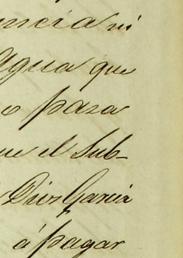 encia ni
agua que
o para
ue el Sub-
Dios Garcia
á pagar